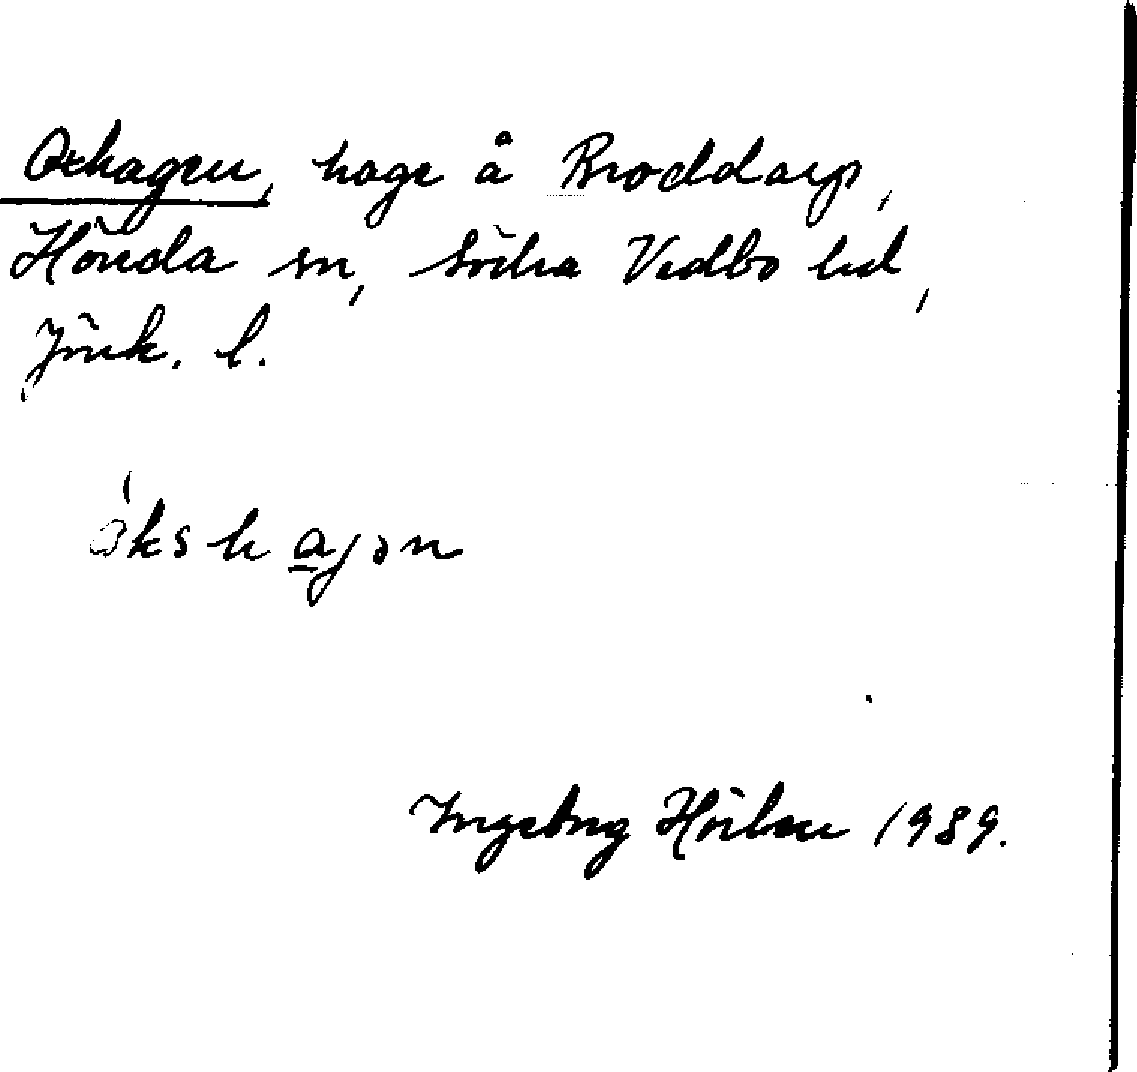 Oxhagen, hage å Broddarp,
Höreda sn, Södra Vedbo hd,
Jönk. l.
ökshagən
Ingeborg 1989.